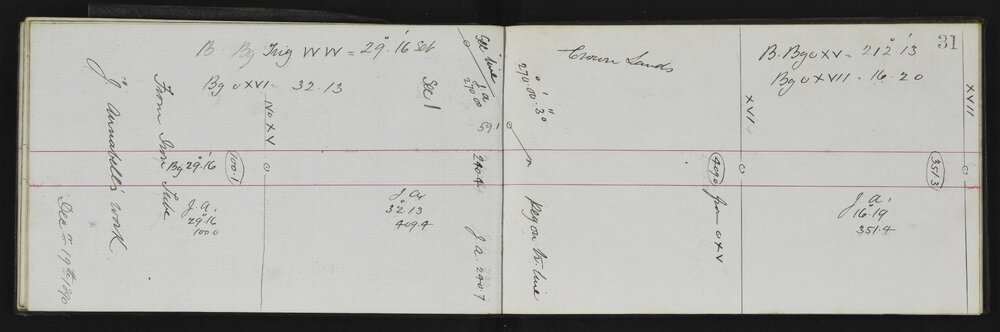 B. Bg Trig WW = 29°.16' Set
Bg o XVI = 32.13
J Annabell's work
Dec 19th 1890
From Iron Tube
Bg 29°.16'
1001
No XV
o
J. A.
29°.16
1000
Sec 1
J. A.
32.13
409.4
See line
J. a
270 00
59.1
240 4
J a. 240 7
270°.00'.30"
Peg on tr. line
Crown Lands
31
B. Bg o XV = 212°.13'
Bg o XVII = 16.20
XVI
o
4090
from o XV
XVII
o
351.3
J. a.
16°.19
351.4